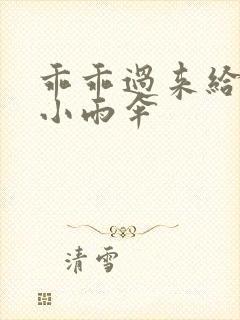 乖乖过来给
小雨伞
清雪